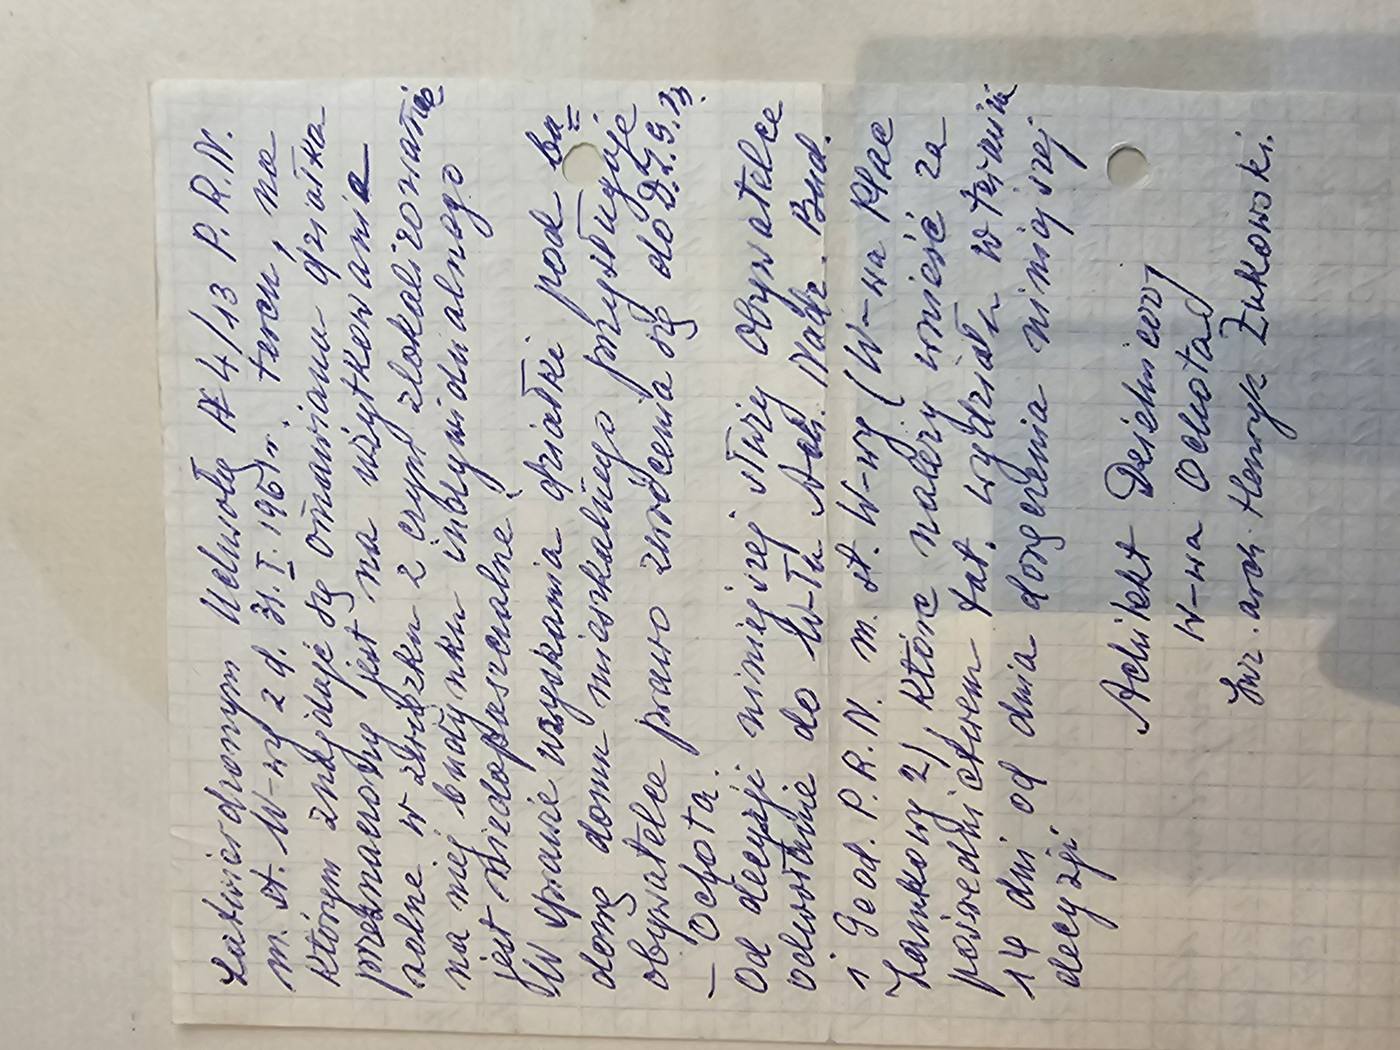 Zatwierdzonym Uchwałą № 4/13 P.R.N.
m. st. W-wy z d. 31.I.1961r. teren, na
którym znajduje się omawiana działka
przeznaczony jest na użytkowania
zolne w związku z czym zlokalizowanie
na niej budynku indywidualnego
jest niedopuszczalne.
W sprawie uzyskania działki pod bu=
dowę domu mieszkalnego przysługuje
obywatelce prawo zwrócenia się do D.Z.S.B.
— Ochota.
Od decyzji niniejszej służy obywatelce
odwołanie do W-łu Arch. Nadz. Bud.
i Geod. P.R.N. m. st. W-wy (W-wa Plac
Zamkowy 2) które należy wnieść za
pośrednictwem tut. wydziału w terminie
14 dni od dnia doręczenia niniejszej
decyzji
Architekt Dzielnicowy
W-wa Ochota
Inż. arch. Henryk Żukowski.